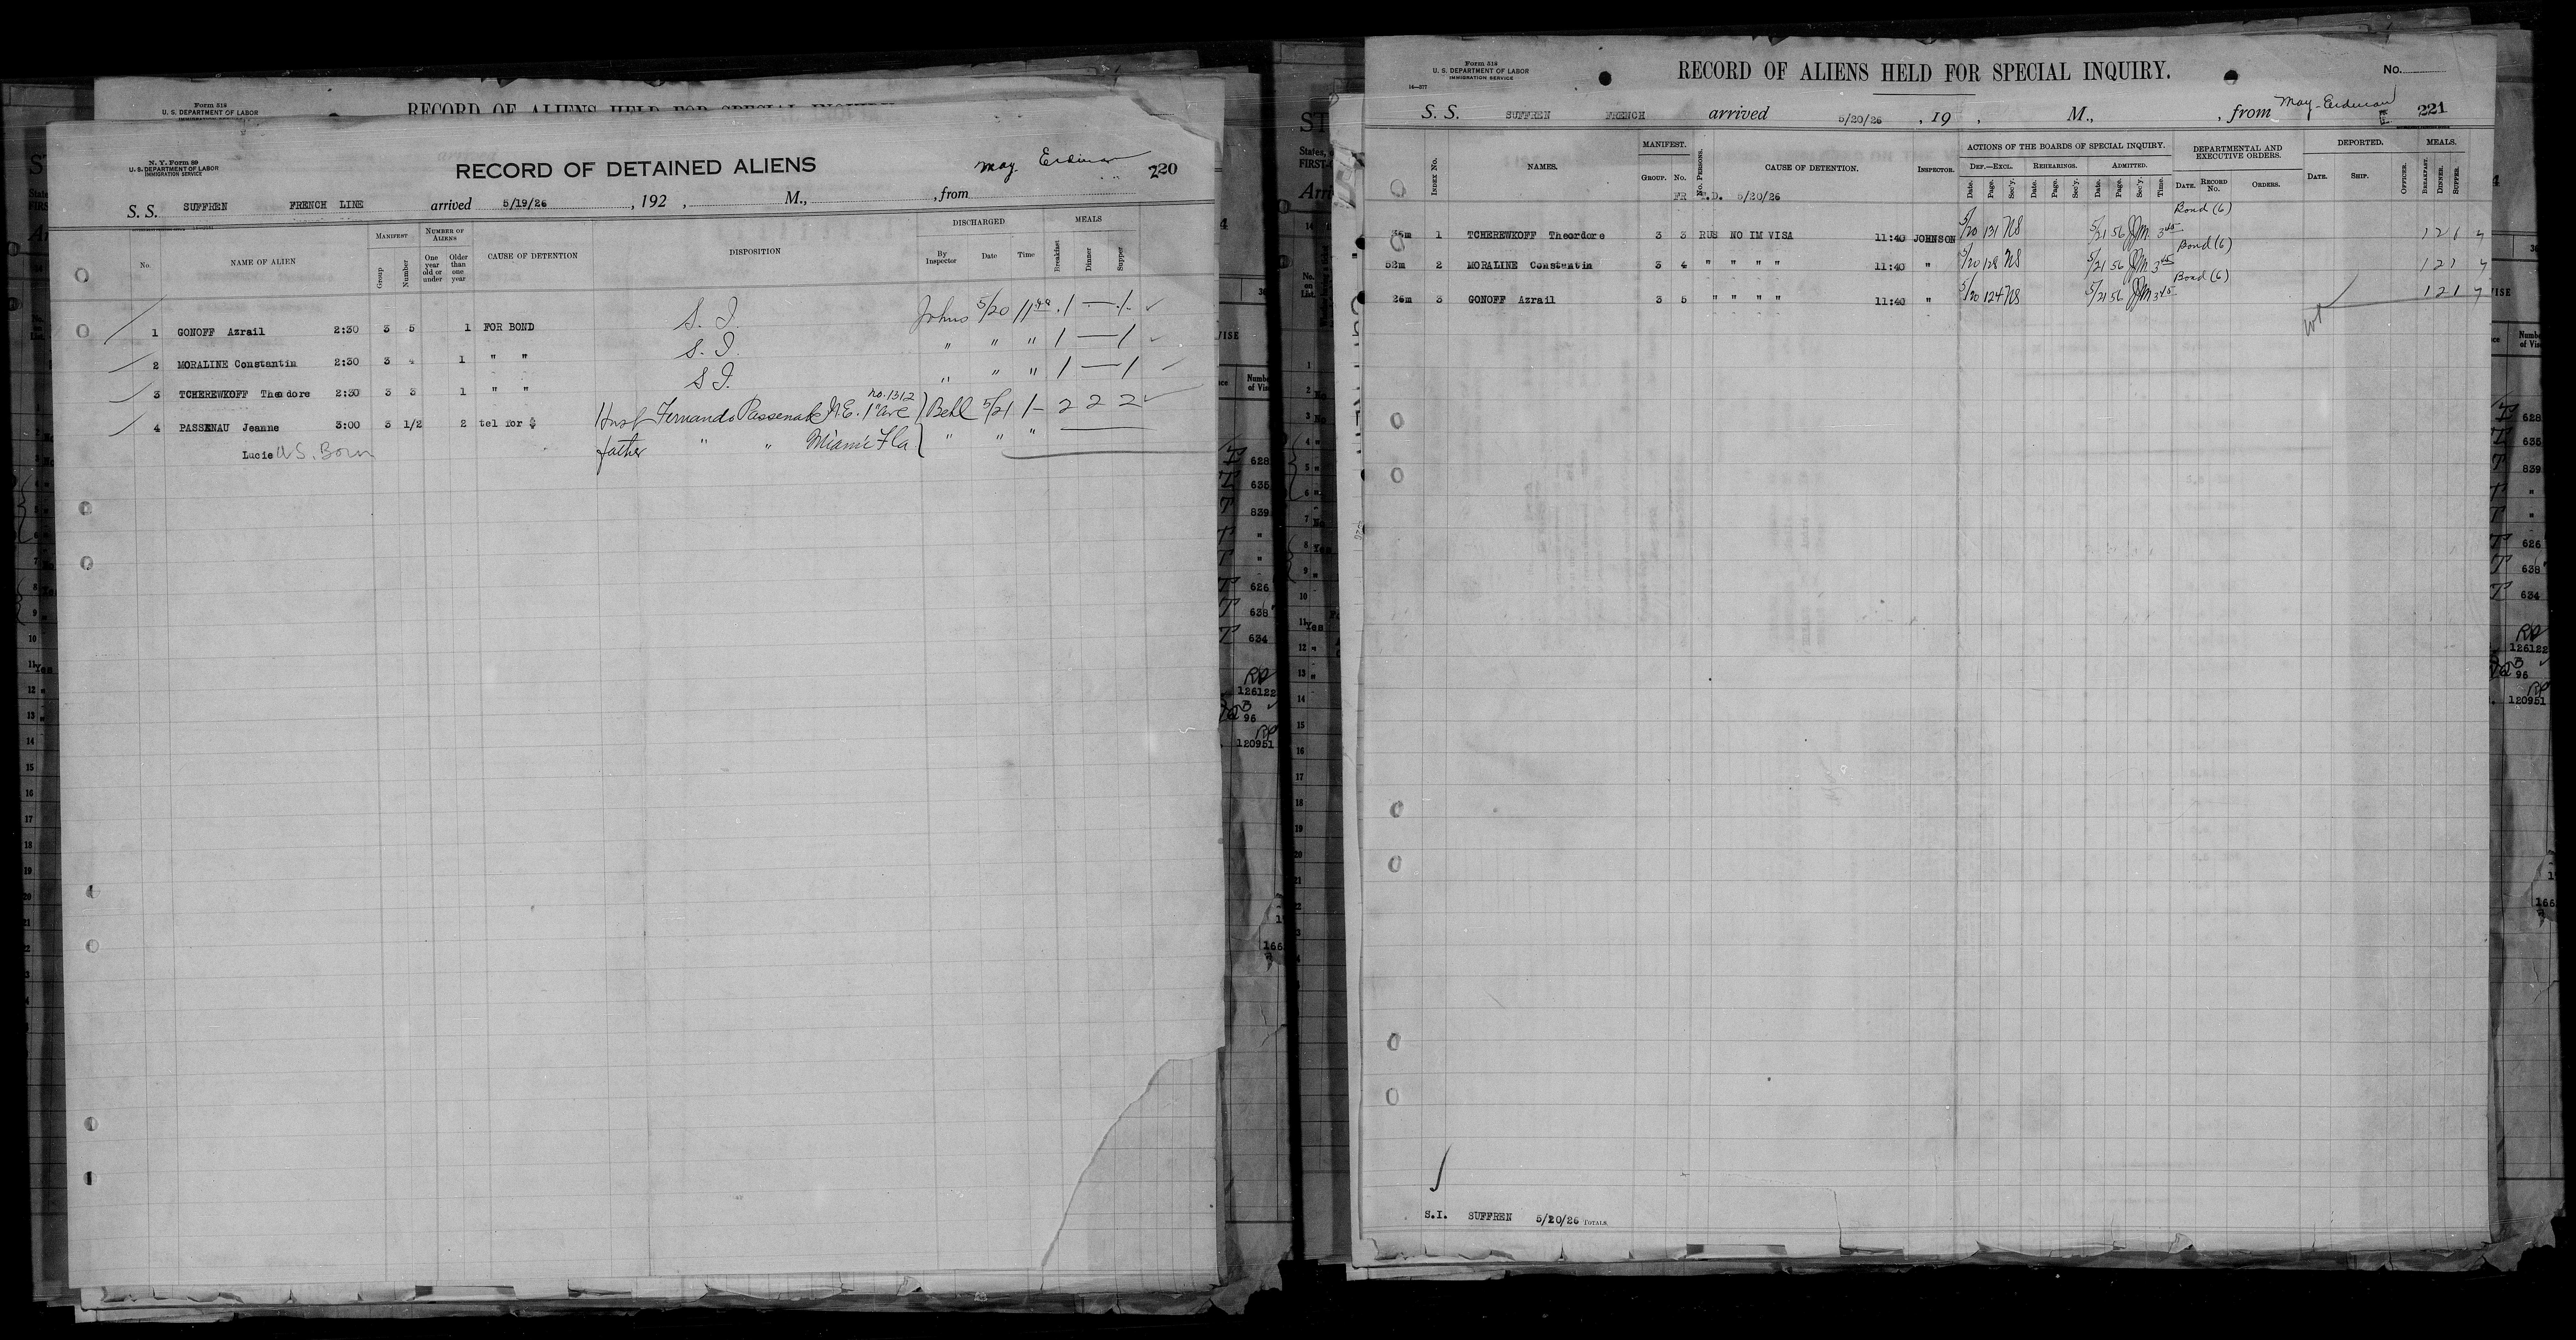 Form 518
U. S. DEPARTMENT OF LABOR
RECORD OF ALIENS HELD FOR SPECIAL INQUIRY
N. Y. Form 89
U. S. DEPARTMENT OF LABOR
IMMIGRATION SERVICE
RECORD OF DETAINED ALIENS
May
220
S. S. SUFFREN FRENCH LINE arrived 5/19/26, 192 , M., , from
No. NAME OF ALIEN MANIFEST Group Number NUMBER OF ALIENS One year old or under Older than one year CAUSE OF DETENTION DISPOSITION DISCHARGED By Inspector Date Time MEALS Breakfast Dinner Supper
1 GONOFF Azrail 2:30 3 5 1 FOR BOND S. I. Johns 5/20 11 40 1 — 1
2 MORALINE Constantin 2:30 3 4 1 " " S. I. " " " 1 — 1
3 TCHEREWKOFF Theodore 2:30 3 3 1 " " S I. " " " 1 — 1
4 PASSENAU Jeanne 3:00 3 1/2 2 tel for $ Husb Fernando Passenak No. 1312 N.E. 1st ave Bell 5/21 1- 2 2 2
Lucie U S. Born father " " Miami Fla " " "
Form 518
U. S. DEPARTMENT OF LABOR
IMMIGRATION SERVICE
14—577
RECORD OF ALIENS HELD FOR SPECIAL INQUIRY.
No.
S. S. SUFFREN FRENCH arrived 5/20/26 , 19 , M., , from May 221
INDEX No. NAMES. MANIFEST. GROUP. No. No. PERSONS. CAUSE OF DETENTION. INSPECTOR. ACTIONS OF THE BOARDS OF SPECIAL INQUIRY. DEF.—EXCL. Date. Page. Sec'y. REHEARINGS. Date. Page. Sec'y. ADMITTED. Date. Page. Sec'y. Time. DEPARTMENTAL AND EXECUTIVE ORDERS. DATE. RECORD No. ORDERS. DEPORTED. DATE. SHIP. OFFICER. MEALS. BREAKFAST. DINNER. SUPPER.
5/20/26
Bond (6)
1 TCHEREWKOFF Theordore 3 3 RUS NO IM VISA 11:40 JOHNSON 5/20 131 NS 5/21 56 JJM 3 45 1 2 1
Bond (6)
52m 2 MORALINE Constantin 3 4 " " " " 11:40 " 5/20 128 NS 5/21 56 JJM 3 45 1 2 1
Bond (6)
26m 3 GONOFF Azrail 3 5 " " " " 11:40 " 5/20 124 NS 5/21 56 JJM 3 45 1 2 1
S.I. SUFFREN 5/20/26 TOTALS